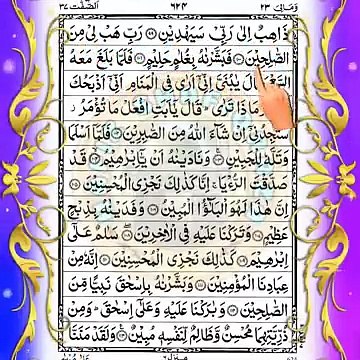 وَمَالِيَ ٢٣ ٦٢٤ الصّٰٓفّٰت ٣٧
ذَاهِبٌ اِلٰى رَبِّىْ سَيَهْدِيْنِ ۝ رَبِّ هَبْ لِىْ مِنَ
الصّٰلِحِيْنَ ۝ فَبَشَّرْنٰهُ بِغُلٰمٍ حَلِيْمٍ ۝ فَلَمَّا بَلَغَ مَعَهُ
قَالَ يٰبُنَىَّ اِنِّىْۤ اَرٰى فِى الْمَنَامِ اَنِّىْۤ اَذْبَحُكَ
مَاذَا تَرٰى ؕ قَالَ يٰۤاَبَتِ افْعَلْ مَا تُؤْمَرُ
سَتَجِدُنِىْۤ اِنْ شَآءَ اللّٰهُ مِنَ الصّٰبِرِيْنَ ۝ فَلَمَّاۤ اَسْلَمَا
وَتَلَّهٗ لِلْجَبِيْنِ ۝ وَنَادَيْنٰهُ اَنْ يّٰۤاِبْرٰهِيْمُ ۝ قَدْ
صَدَّقْتَ الرُّءْيَا ۚ اِنَّا كَذٰلِكَ نَجْزِى الْمُحْسِنِيْنَ ۝
اِنَّ هٰذَا لَهُوَ الْبَلٰٓؤُا الْمُبِيْنُ ۝ وَفَدَيْنٰهُ بِذِبْحٍ
عَظِيْمٍ ۝ وَتَرَكْنَا عَلَيْهِ فِى الْاٰخِرِيْنَ ۝ سَلٰمٌ عَلٰٓى
اِبْرٰهِيْمَ ۝ كَذٰلِكَ نَجْزِى الْمُحْسِنِيْنَ ۝ اِنَّهٗ مِنْ
عِبَادِنَا الْمُؤْمِنِيْنَ ۝ وَبَشَّرْنٰهُ بِاِسْحٰقَ نَبِيًّا مِّنَ
الصّٰلِحِيْنَ ۝ وَبٰرَكْنَا عَلَيْهِ وَعَلٰٓى اِسْحٰقَ ؕ وَمِنْ
ذُرِّيَّتِهِمَا مُحْسِنٌ وَّظَالِمٌ لِّنَفْسِهٖ مُبِيْنٌ ۝ وَلَقَدْ مَنَنَّا